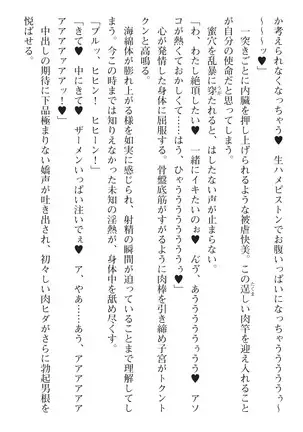 か考えられなくなっちゃう♥　生ハメピストンでお腹いっぱいになっちゃうううぅ～
～～～ッ♥」
　一突きごとに内臓を押し上げられるような被虐快美。この逞しい肉竿を迎え入れること
が自分の使命だと思ってしまう。
　蜜穴を乱暴に穿たれると、はしたない声が止まらない。
「わ、わたし絶頂したい♥　一緒にイキたいのぉ♥　んづ、あうううううぅうう♥　アソ
コが熱くておかしくて……はう、ひゃううううううううう♥」
　心が発情した身体に屈服する。骨盤底筋がすがるように肉棒を引き締め子宮がトクント
クンと高鳴る。
　海綿体が膨れ上がる様を如実に感じられ、射精の瞬間が迫っていることまで理解してし
まう。今この時までは知りえなかった未知の淫熱が、身体中を舐め尽くす。
「ブルッ、ヒヒン！　ヒヒーン！」
「きて♥　中にきて♥　ザーメンいっぱい注いでぇ♥　ア、やあ……あう、アアアアアア
アアアアァアアッ！♥」
　中出しの刺激に下品極まりない嬌声が吐き出され、初々しい肉ヒダがさらに勃起男根を
悦ばせる。